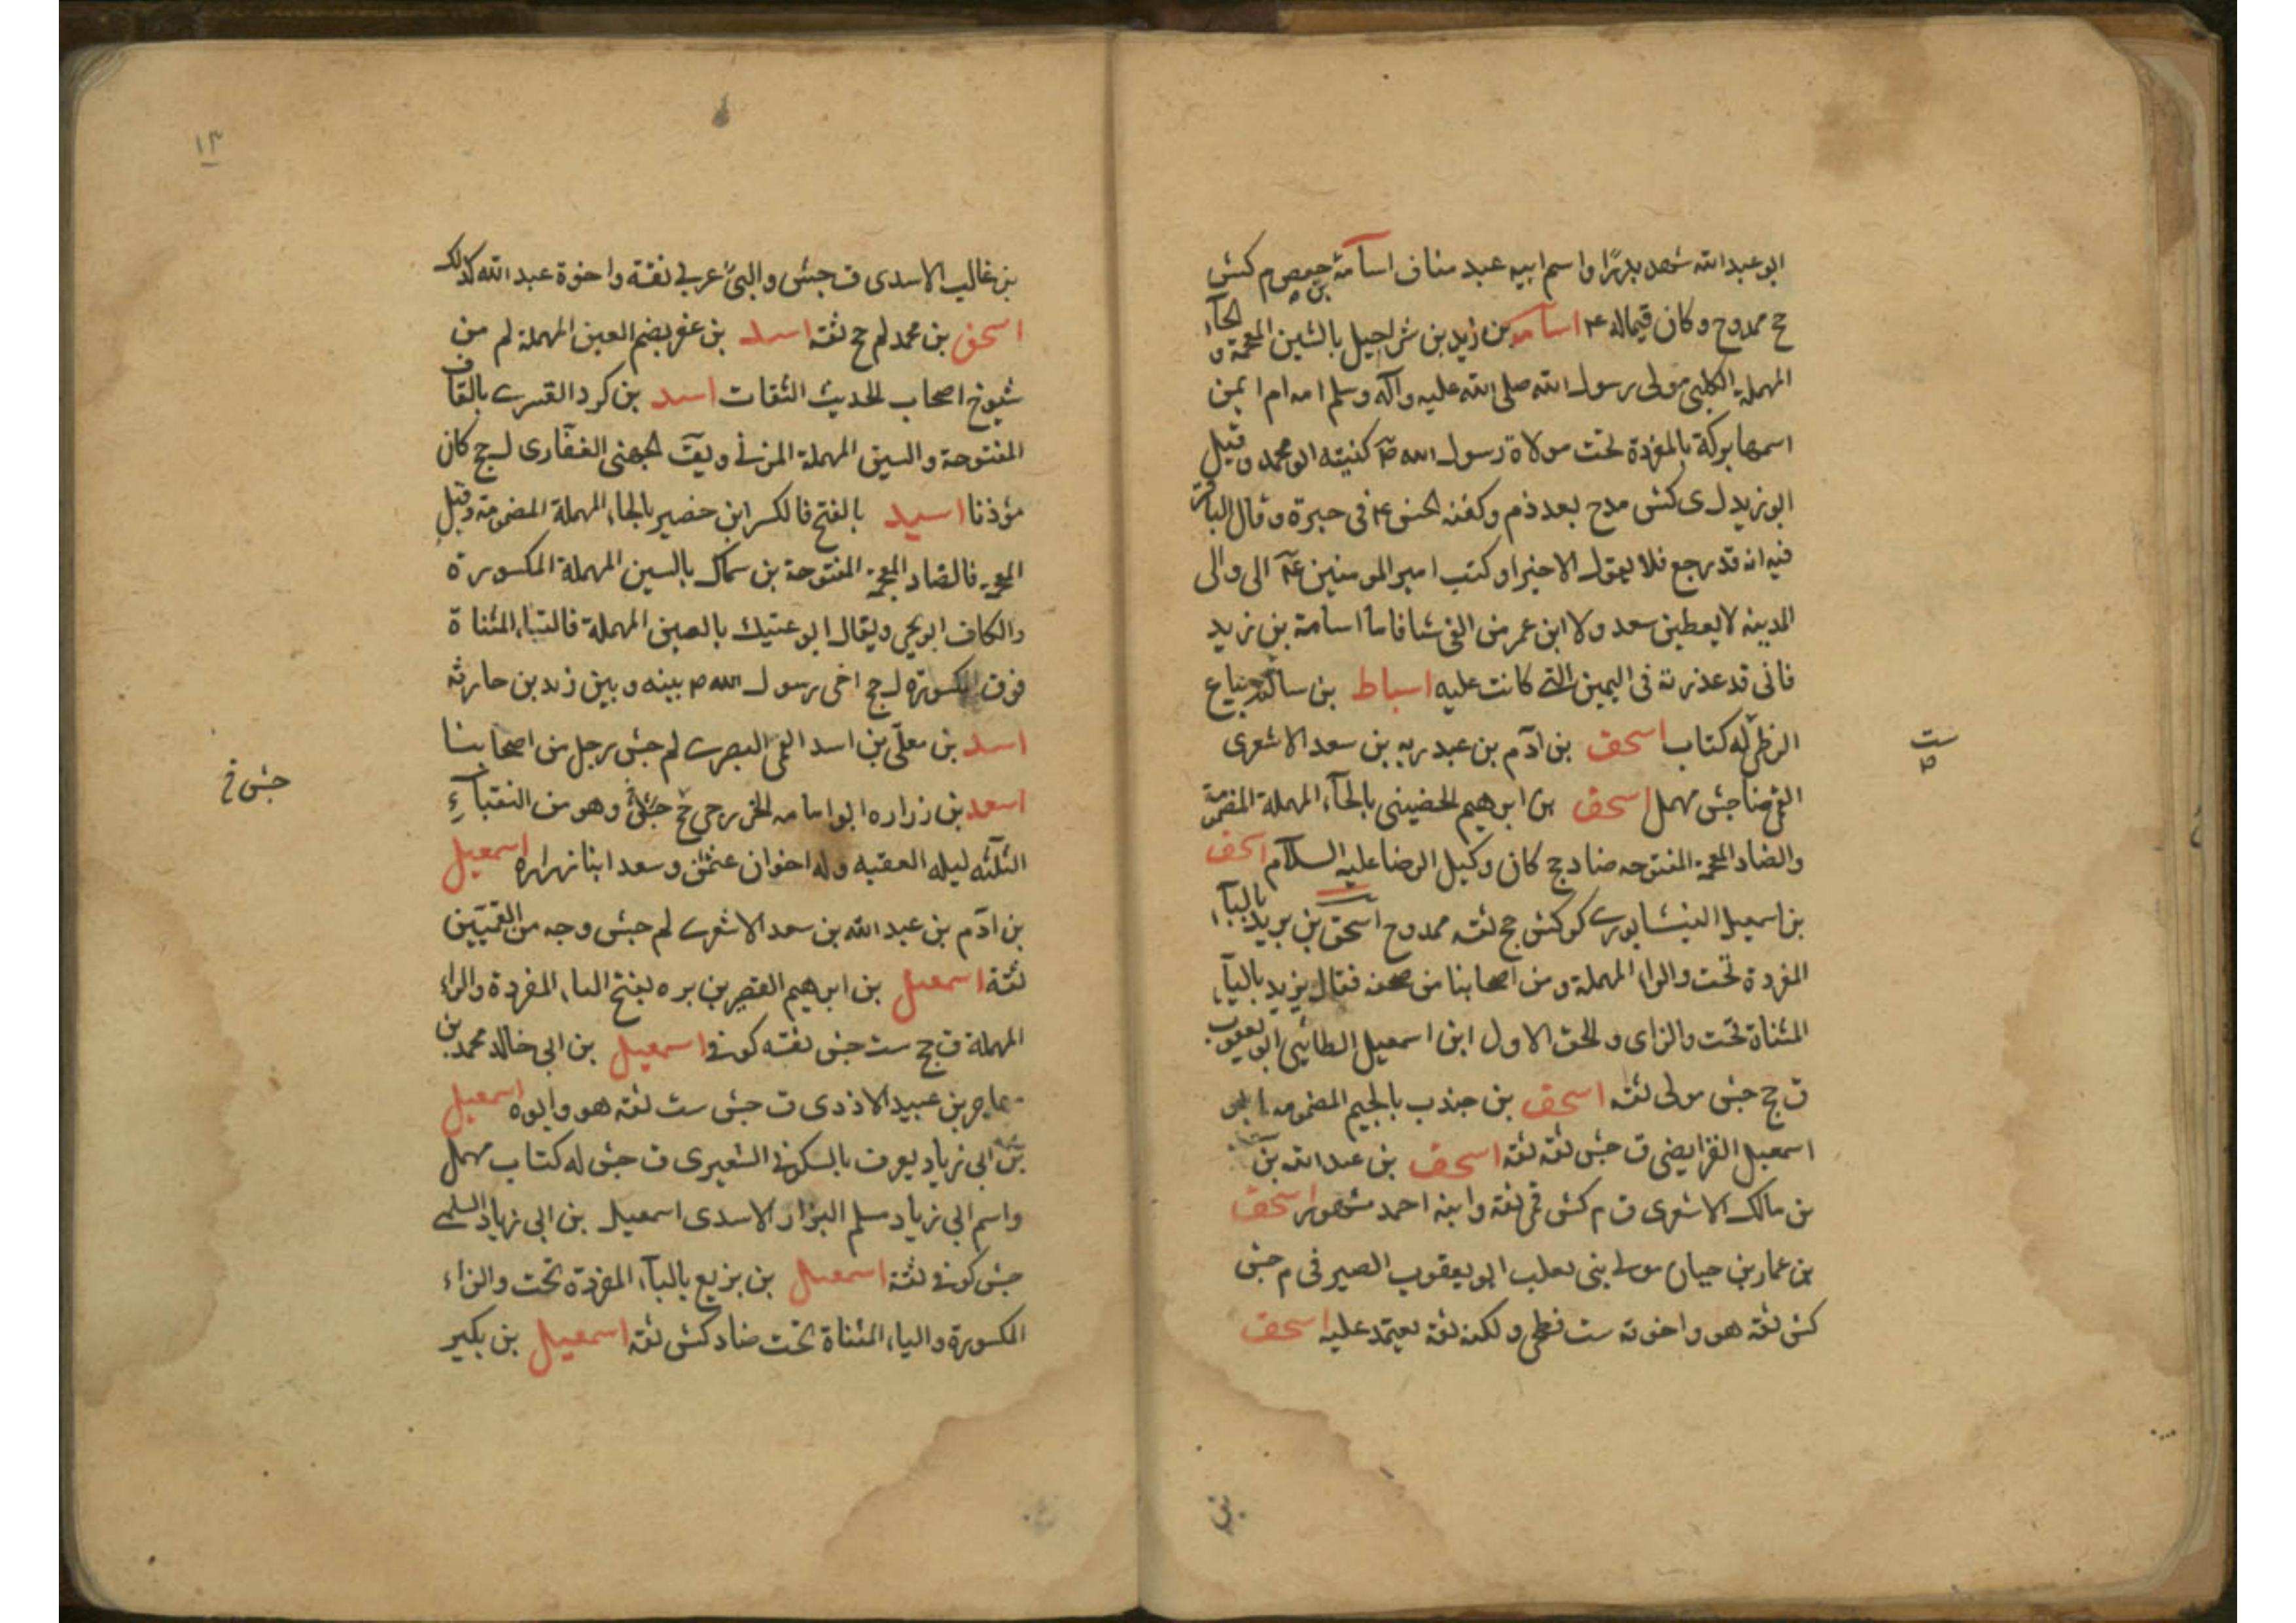 ابو عبد الله شهد بدرًا واسم ابيه عبد مناف اسامة بن حفص م كش
ح ممدوح وكان قيما له ع اسامة بن زيد بن شراحيل بالشين المعجمة و الحآء
المهملة الكلبى مولى رسول الله صلى الله عليه وآله وسلم امه ام ايمن
اسمها بركة بالمفردة تحت مولاة رسول الله ص كنيته ابو محمد وقيل
ابو زيد ل ى كش مدح بعد ذم وكفنه الحسن ع فى حبرة وقال الباقر
فيه انه قد رجع فلا يقول الا خيرا وكتب امير المومنين ع الى والى
المدينه لا يعطين سعد ولا ابن عمر من الفى شيا فاما اسامة بن زيد
فانى قد عذرته فى اليمين التى كانت عليه اسباط بن سالم بياع
الزطى له كتاب اسحق بن آدم بن عبد ربه بن سعد الاشعرى
القمى ضا جش مهمل اسحق بن ابرهيم الحضينى بالحآء المهملة المضمومة
والضاد المعجمة المفتوحه ضا د ج كان وكيل الرضا عليه السلام اسحق
بن اسمعيل النيشابورى كر كش جج ثقه ممدوح اسحق بن بريد بالبآء
المفردة تحت والراء المهملة ومن اصحابنا من صحفه فقال يزيد باليآء
المثناة تحت والزاى والحق الاول ابن اسمعيل الطائى ابو يعقوب
ق جج جش مولى ثقه اسحق بن جندب بالجيم المضمومه ابو
اسمعيل الفرايضى ق جش ثقه ثقه اسحق بن عبد الله بن
بن مالك الاشعرى ق م كش قمى ثقة وابنه احمد مشهور اسحق
بن عمار بن حيان مولى بنى تغلب ابو يعقوب الصيرفى م جش
كش ثقه هو واخوته ست فطحى ولكنه ثقه يعتمد عليه اسحق
ست
بن
١٣
بن غالب الاسدى ق جش والبى عربى ثقة واخوة عبد الله كذلك
اسحق بن محمد لم جج ثقه اسد بن عفر بضم العين المهملة لم من
شيوخ اصحاب الحديث الثقات اسد بن كرد القسرى بالقاف
المفتوحة والسين المهملة المزنى ويق الجهنى الغفارى ل جج كان
مؤذنا اسيد بالفتح فالكسر ابن حضير بالحاء المهملة المضمومة وقيل
المعجمة فالضاد المعجمة المفتوحة بن سماك بالسين المهملة المكسورة
والكاف ابو يحيى ويقال ابو عتيك بالعين المهملة فالتاء المثناة
فوق المكسورة ل جج اخى رسول الله ص بينه وبين زيد بن حارثه
اسد بن معلى بن اسد القمى البصرى لم جش رجل من اصحابنا
اسعد بن زراره ابو امامه الخزرجى جج وهو من النقبآء
الثلثه ليله العقبه وله اخوان عثمن وسعد ابنا زراره اسمعيل
بن آدم بن عبد الله بن سعد الاشعرى لم جش وجه من القميين
ثقة اسمعيل بن ابرهيم القصير بن بره بفتح الباء المفردة والراء
المهملة ق جج ست جش ثقه كوفى اسمعيل بن ابى خالد محمد بن
مهاجر بن عبيد الازدى ق جش ست ثقه هو وابوه اسمعيل
بن ابى زياد يعرف بالسكونى الشعيرى ق جش له كتاب مهمل
واسم ابى زياد مسلم البزاز الاسدى اسمعيل بن ابى زياد السلمى
جش كوفى ثقة اسمعيل بن بزيع بالبآء المفردة تحت والزاء
المكسورة والياء المثناة تحت ضا د كش ثقه اسمعيل بن بكير
جش